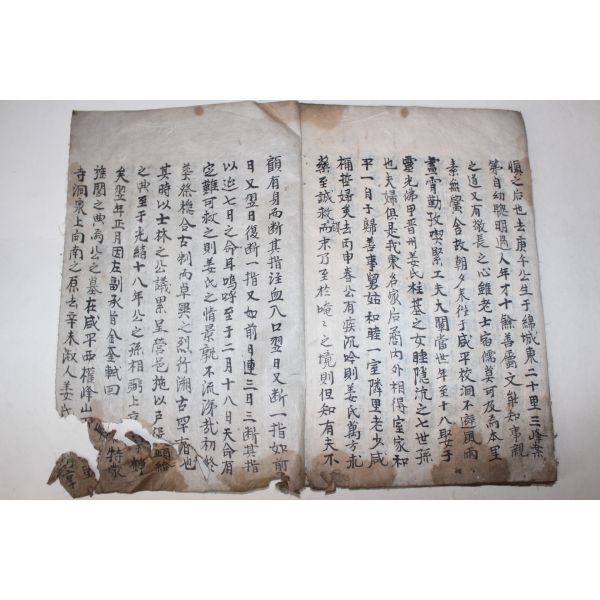 慎之后也去庚午公生于綿城東二十里三峰
第自幼聰明過人年才十餘善屬文能知事親
之道又有敬長之心雖老士宿儒莫可及焉本里
素無黌舍故朝夕來往于咸平校洞不避風雨
晝宵勤孜喫緊工夫大闡當世年至十八娶于
靈光佛甲晋州姜氏桂基之女睦隱沆之七世孫
也夫婦俱是我東名家后裔內外相得室家和
平一自于歸善事舅姑和睦一室隣里老少咸
稱哲婦矣去丙申春公有疾沉吟則姜氏萬方求
藥至誠救而末乃至於唵唵之境則但知有夫不
顧有身而斷其指注血入口翌日又斷一指如前
日又翌日復斷一指又如前日連三日三斷其指
以延七日之命耳嗚呼至于二月十八日天命有
定難可救之則姜氏之情景孰不流涕哉初終
葬祭稳合古制而卓異之烈行溯古罕者也
其時以士林之公議累呈營邑拖以戶役頉給
之典至于光緒十八年公之孫相弼上京
矣翌年正月因左副承旨金奎軾回 特蒙
旌閭之典焉公之墓在咸平西權峰山 里
寺洞亥上向南之原去辛未淑人姜氏